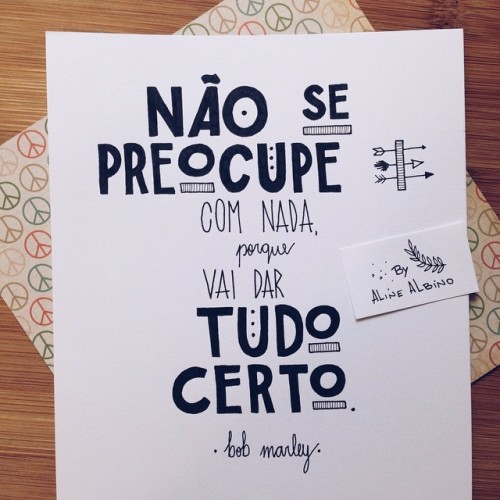 NÃO SE
PREOCUPE
COM NADA,
porque
VAI DAR
TUDO
CERTO.
· bob marley ·
BY
ALINE ALBINO